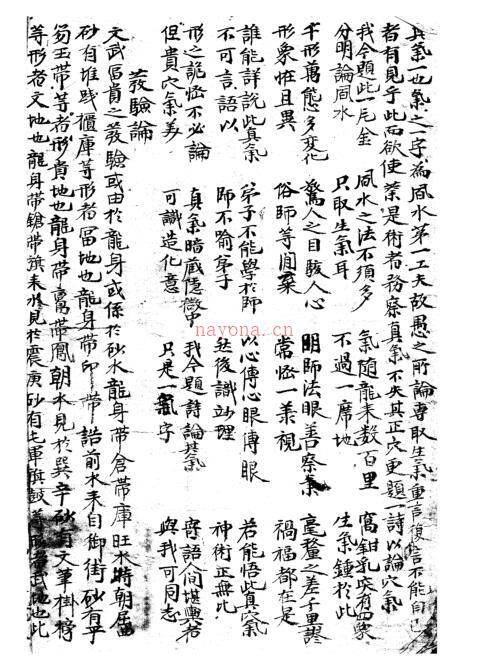 其氣一也氣之一字為風水第一工夫故愚之所論專取生氣重言復言不能自已
者有見乎此而欲使業是術者務察真氣不失其正穴更題一詩以論穴氣
我今題此一尺金 風水之法不須多 氣隨龍來數百里 窩鉗乳突有四象
分明論風水 只取生氣耳 不過一席地 生氣鍾於此
千形萬態多变化 驚人之目駭人心 明師法眼善察氣 毫釐之差千里謬
形象恠且異 俗師等閒棄 常恠一美視 禍福都在是
誰能詳說此真氣 弟子不能學於師 以心傳心眼傳眼 若能悟此真穴氣
不可言語以 師不喻弟子 然後識妙理 神術正無比
形之詭恠不必論 真氣暗藏隱微中 我今題詩論其氣 寄語人间堪輿者
但貴穴氣美 可識造化意 只是一氣字 與我可同志
發驗論
文武冨貴之發驗或由於龍身或係於砂水龍身帶倉帶庫旺水特朝
砂有堆錢櫃庫等形者冨地也龍身帶印帶誥前水来自御街砂有平
笏玉帶等者形貴地也龍身帶鸞帶鳳朝水見於巽辛砂有文筆掛榜
等形者文地也龍身帶鎗帶旗来水見於震庚砂有屯軍旗鼓等形者武地也此
nayona.cn